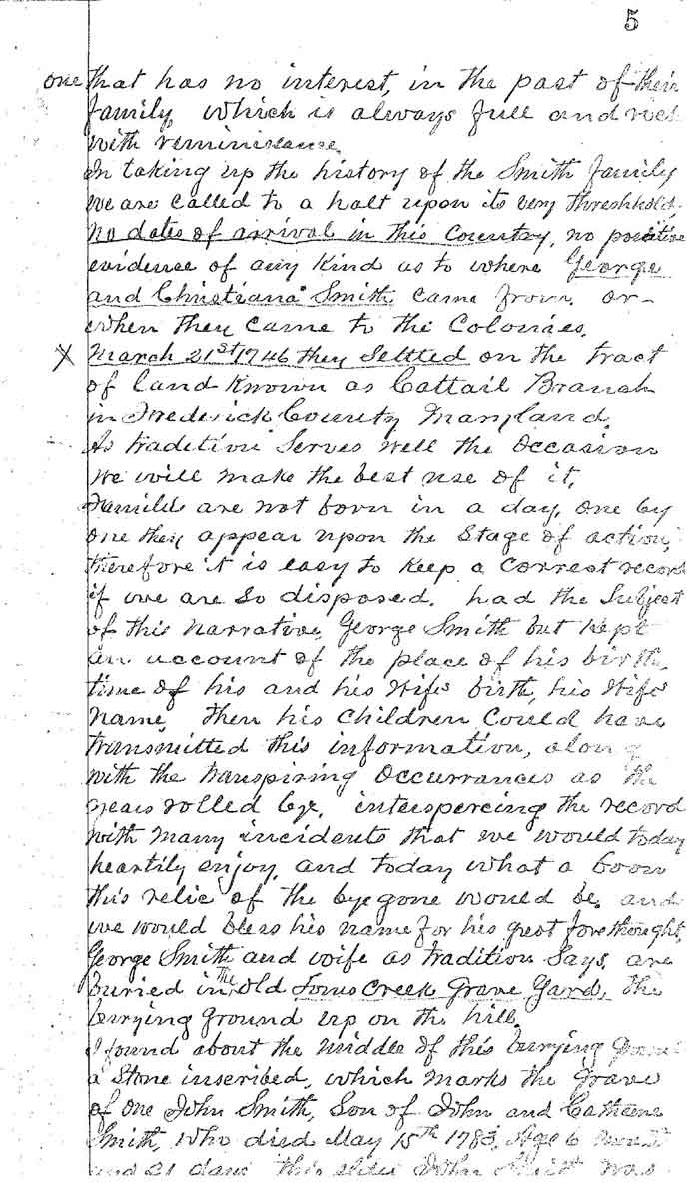 5
one that has no interest, in the past of their
family, which is always full and rich
with reminiscence.
In taking up the history of the Smith family
we are called to a halt upon its very threshhold.
No dates of arrival in this Country, no positive
evidence of any Kind as to where George
and Christiana Smith came from or
when they came to the Colonies.
X March 21st 1746 they Settled on the tract
of land known as Cattail Branch
in Frederick County Maryland.
As tradition Serves well the Occasion
we will make the best use of it.
Families are not born in a day, one by
one they appear upon the Stage of action,
therefore it is easy to keep a correct record
if we are so disposed. had the Subject
of this narrative, George Smith but kept
an account of the place of his birth,
time of his and his Wifes birth, his Wifes
Name, then his children could have
transmitted this information, along
with the transpiring Occurrances as the
years rolled bye. interspercing the record
with many incidents that we would today
heartily enjoy, and today what a boon
this relic of the bye gone would be, and
we would bless his name for his great forethought,
George Smith and wife as tradition Says, are
buried in The Old Toms Creek Grave Yard, the
burying ground up on the hill.
I found about the middle of this burying Ground
a Stone inscribed, which marks the Grave
of one John Smith, Son of John and Catherine
Smith, who died May 15th 1783, Age 6
and 21 days this John Smith was